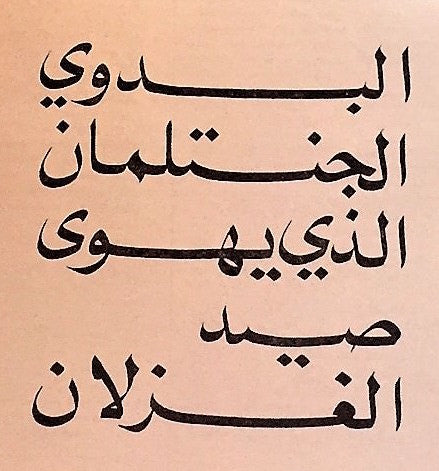 البدوي
الجنتلمان
الذي يهوى
صيد
الغزلان